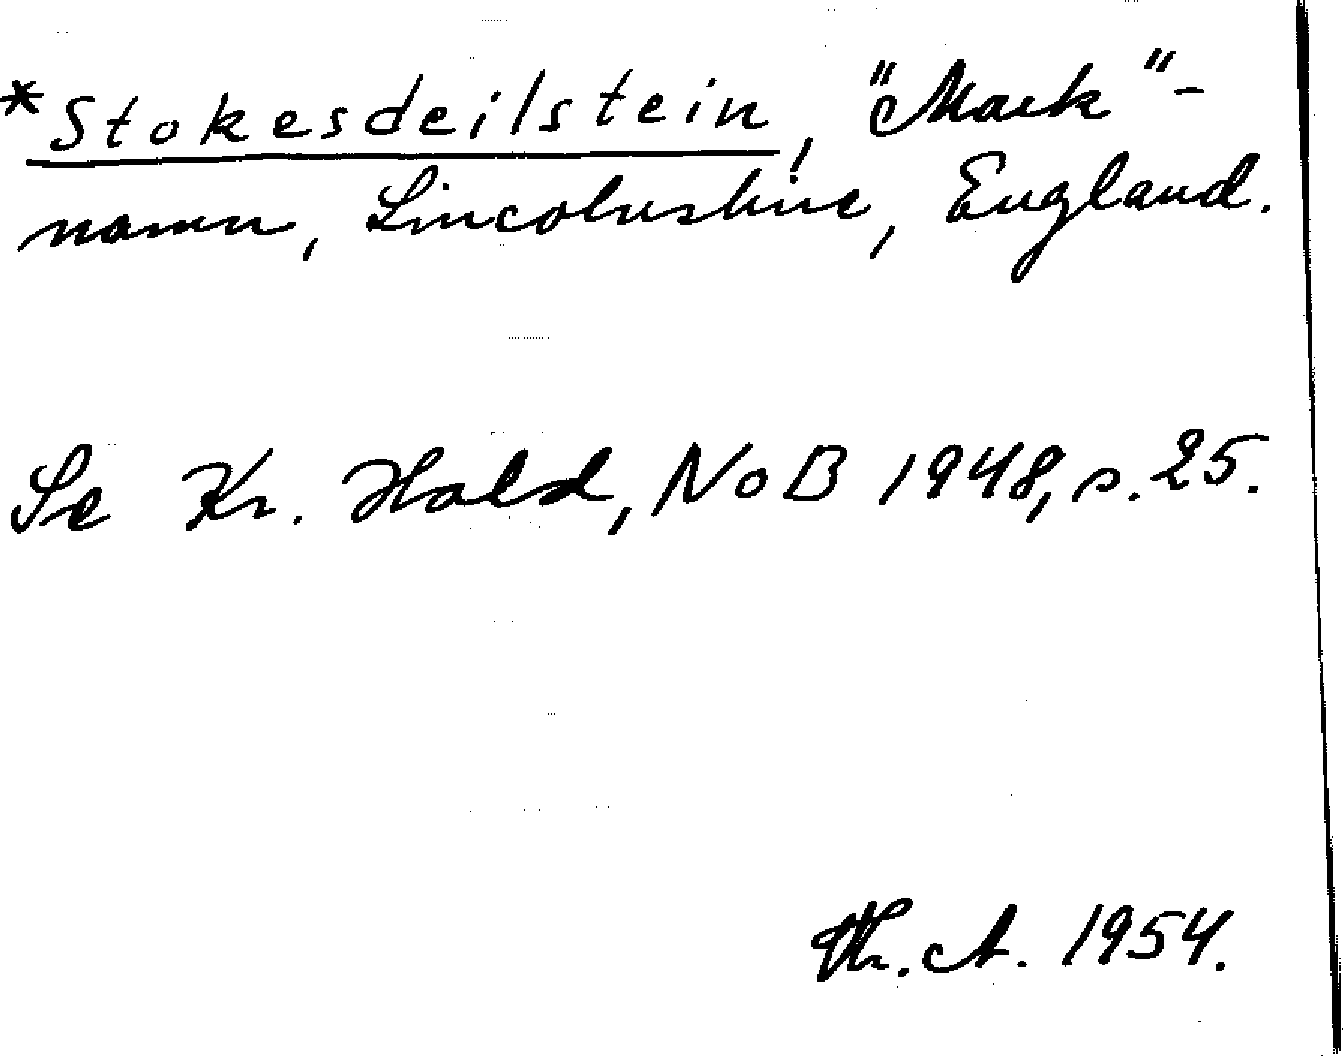 *Stokesdeilstein, "Mark"-
namn, Lincolnshire, England.
Se Kr. Hald, NoB 1948, s. 25.
Th. A. 1954.